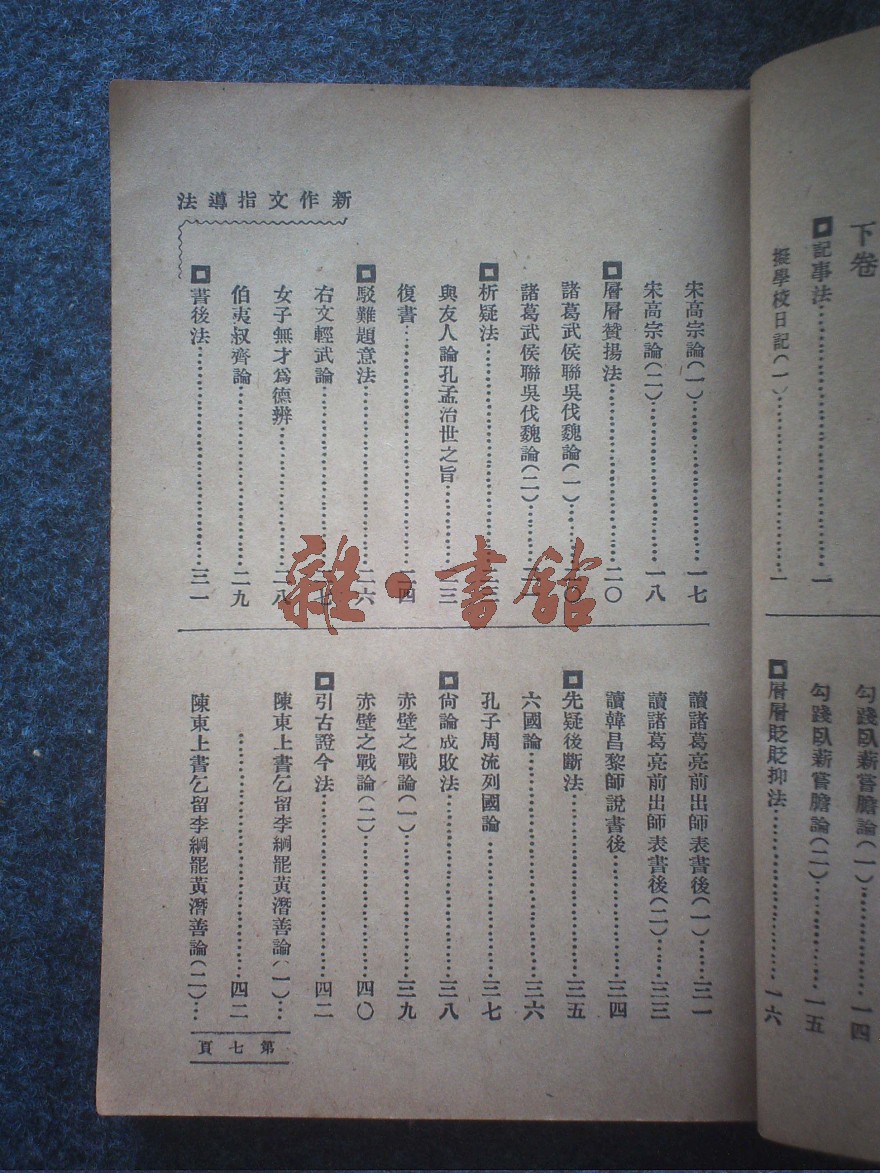 下卷
記事法……一
擬學校日記(一)……一
勾踐臥薪嘗膽論(一)……一四
勾踐臥薪嘗膽論(二)……一五
層層貶貶抑法……一六
新作文指導法
宋高宗論(一)……一七
宋高宗論(二)……一八
層層贊揚法……二〇
諸葛武侯聯吳伐魏論(一)……二〇
諸葛武侯聯吳伐魏論(二)……
析疑法……
與友人論孔孟治世之旨……二三
復書……二四
駁難題意法……二六
右文輕武論……二七
女子無才為德辨……二八
伯夷叔齊論……二九
書後法……三一
讀諸葛亮前出師表書後(一)……三一
讀諸葛亮前出師表書後(二)……三三
讀韓昌黎師說書後……三四
先疑後斷法……三五
六國論……三六
孔子周流列國論……三七
尙論成敗法……三八
赤壁之戰論(一)……三九
赤壁之戰論(二)……四〇
引古證今法……四二
陳東上書乞留李綱罷黃潛善論(一)…
……四二
陳東上書乞留李綱罷黃潛善論(二)…
第七頁
雜·書館